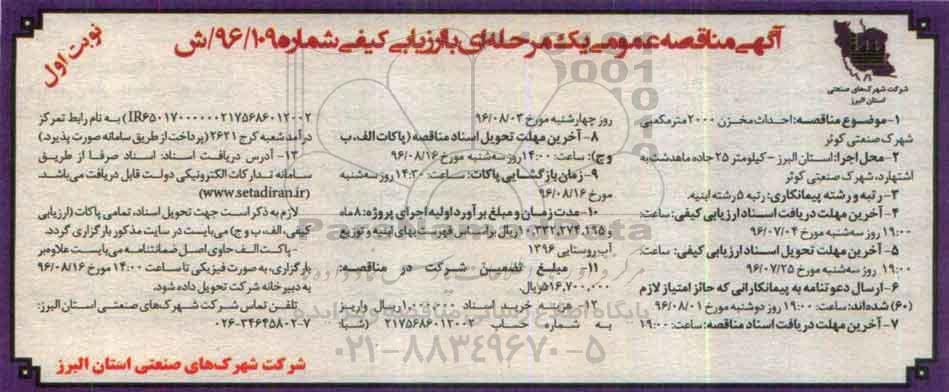 آگهی مناقصه عمومی یک مرحله‌ای با ارزیابی کیفی شماره ۹۶/۱۰۹/ش
نوبت اول
شرکت شهرک‌های صنعتی
استان البرز
۱-موضوع مناقصه: احداث مخزن ۲۰۰۰ مترمکعبی
شهرک صنعتی کوثر
۲- محل اجرا: استان البرز - کیلومتر ۲۵ جاده ماهدشت به
اشتهارد، شهرک صنعتی کوثر
۳- رتبه و رشته پیمانکاری: رتبه ۵ رشته ابنیه.
۴- آخرین مهلت دریافت اسناد ارزیابی کیفی: ساعت:
۱۹:۰۰ روز سه‌شنبه مورخ ۹۶/۰۷/۰۴
۵- آخرین مهلت تحویل اسناد ارزیابی کیفی: ساعت:
۱۹:۰۰ روز سه‌شنبه مورخ ۹۶/۰۷/۲۵
۶-ارسال دعوتنامه به پیمانکارانی که حائز امتیاز لازم
(۶۰) شده‌اند: ساعت: ۱۹:۰۰ روز دوشنبه مورخ ۹۶/۰۸/۰۱
۷- آخرین مهلت دریافت اسناد مناقصه: ساعت: ۱۹:۰۰
روز چهارشنبه مورخ ۹۶/۰۸/۰۳
۸- آخرین مهلت تحویل اسناد مناقصه (پاکات الف، ب
و ج): ساعت: ۱۴:۰۰ روز سه‌شنبه مورخ ۹۶/۰۸/۱۶
۹- زمان بازگشایی پاکات: ساعت: ۱۴:۳۰ روز سه‌شنبه
مورخ ۹۶/۰۸/۱۶
۱۰-مدت زمان و مبلغ برآورد اولیه اجرای پروژه: ۸ ماه
و ۱۰,۳۳۲,۲۷۴,۱۹۵ ریال براساس فهرست بهای ابنیه و توزیع
آب روستایی ۱۳۹۶
۱۱- مبلغ تضمین شرکت در مناقصه:
۵۱۶,۷۰۰,۰۰۰ ریال.
۱۲- هزینه خرید اسناد ۱,۰۰۰,۰۰۰ ریال واریز
به شماره حساب ۲۱۷۵۶۸۶۰۱۲۰۰۲ (شبا:
IR۶۵۰۱۷۰۰۰۰۰۰۰۲۱۷۵۶۸۶۰۱۲۰۰۲) به نام رابط تمرکز
درآمد شعبه کرج ۲۶۲۱ (پرداخت از طریق سامانه صورت پذیرد.)
۱۳- آدرس دریافت اسناد: اسناد صرفا از طریق
سامانه تدارکات الکترونیکی دولت قابل دریافت می‌باشد.
(www.setadiran.ir)
لازم به ذکر است جهت تحویل اسناد، تمامی پاکات (ارزیابی
کیفی، الف، ب و ج) می‌بایست در سایت مذکور بارگزاری گردد.
پاکت الف حاوی اصل ضمانتنامه می‌بایست علاوه‌بر
بارگزاری، به صورت فیزیکی تا ساعت ۱۴:۰۰ مورخ ۹۶/۰۸/۱۶
به دبیرخانه شرکت تحویل داده شود.
تلفن تماس شرکت شهرک‌های صنعتی استان البرز:
۰۲۶-۳۴۶۴۵۸۰۲-۷
پایگاه اطلاع رسانی مناقصه و مزایده
۰۲۱-۸۸۳۴۹۶۷۰-۵
شرکت شهرک‌های صنعتی استان البرز